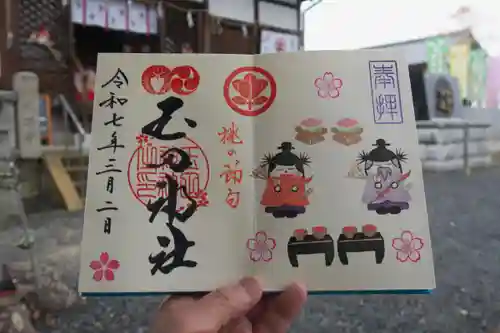 奉拝
桃の節句
玉田神社
令和七年三月二日